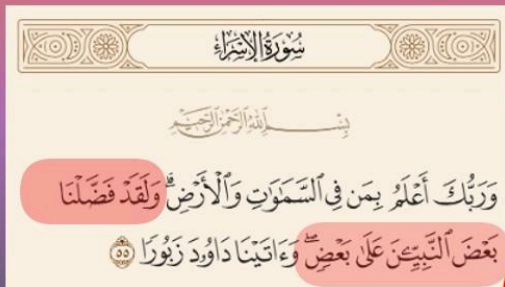 سُورَةُ الإِسْرَاءِ
بِسْمِ اللَّهِ الرَّحْمَٰنِ الرَّحِيمِ
وَرَبُّكَ أَعْلَمُ بِمَن فِى ٱلسَّمَٰوَٰتِ وَٱلْأَرْضِ ۗ وَلَقَدْ فَضَّلْنَا
بَعْضَ ٱلنَّبِيِّـۧنَ عَلَىٰ بَعْضٍ ۖ وَءَاتَيْنَا دَاوُۥدَ زَبُورًا ٥٥